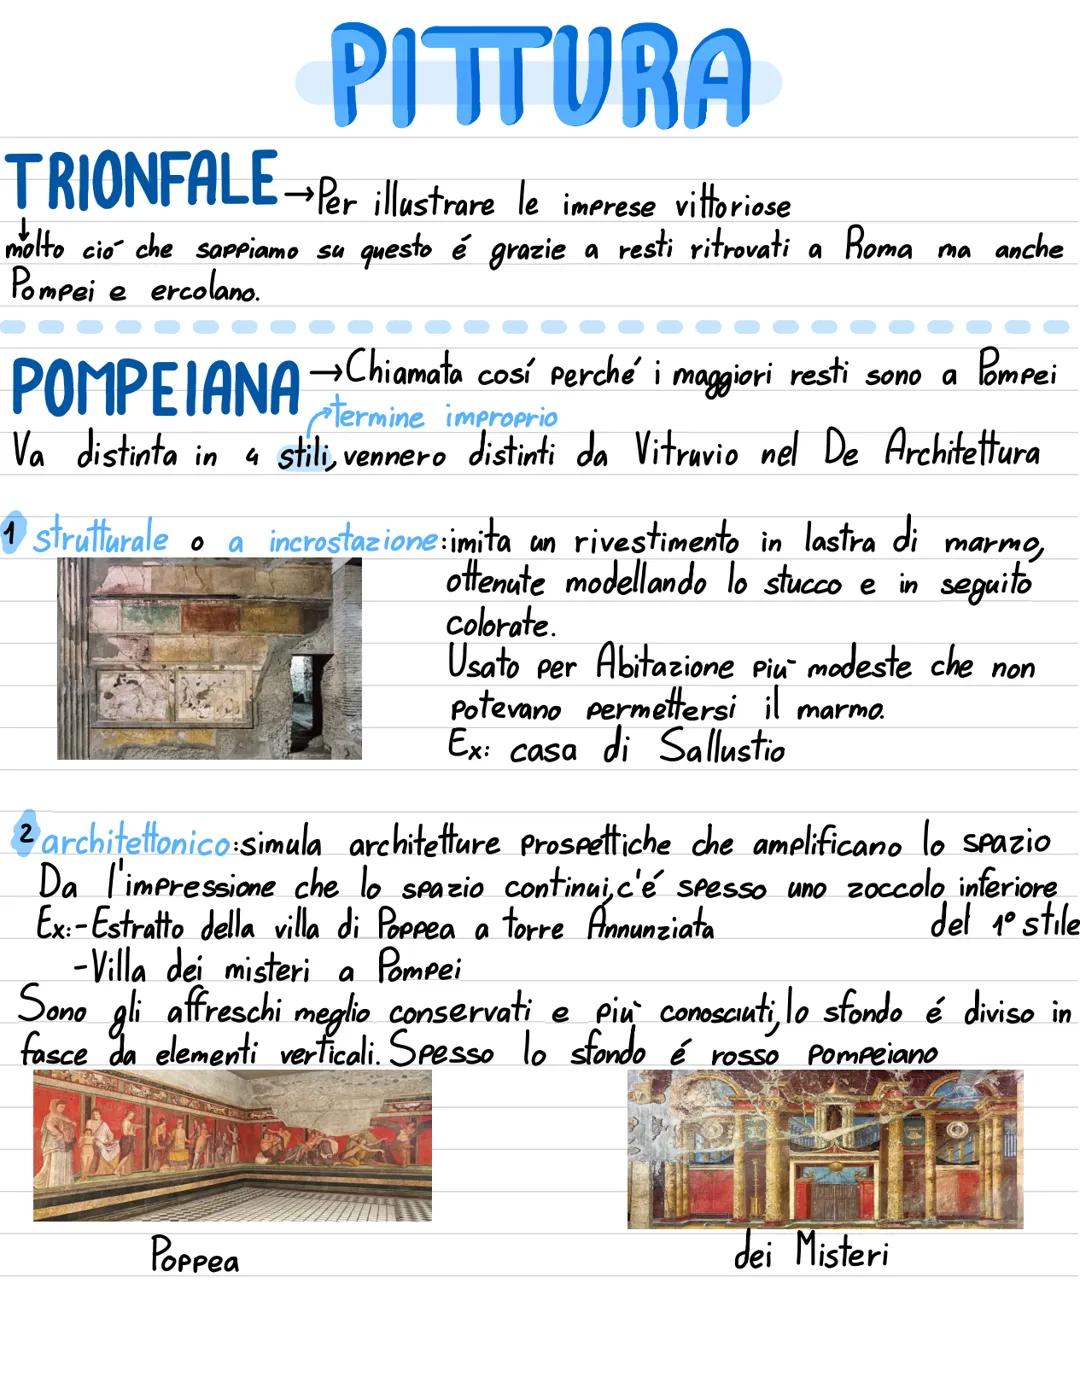 PITTURA
TRIONFALE →Per illustrare le imprese vittoriose
molto ció che sappiamo su questo é grazie a resti ritrovati a Roma ma anche
Pompei e ercolano.
POMPEIANA →Chiamata cosí perché i maggiori resti sono a Pompei
termine improprio
Va distinta in 4 stili, vennero distinti da Vitruvio nel De Architettura
1 strutturale o a incrostazione: imita un rivestimento in lastra di marmo,
ottenute modellando lo stucco e in seguito
colorate.
Usato per Abitazione piu modeste che non
potevano permettersi il marmo.
Ex: casa di Sallustio
2 architettonico: simula architetture prospettiche che amplificano lo spazio
Da l'impressione che lo spazio continui, c'é spesso uno zoccolo inferiore
Ex:-Estratto della villa di Poppea a torre Annunziata del 1° stile
-Villa dei misteri a Pompei
Sono gli affreschi meglio conservati e piú conosciuti, lo sfondo é diviso in
fasce da elementi verticali. Spesso lo sfondo é rosso pompeiano
Poppea
dei Misteri